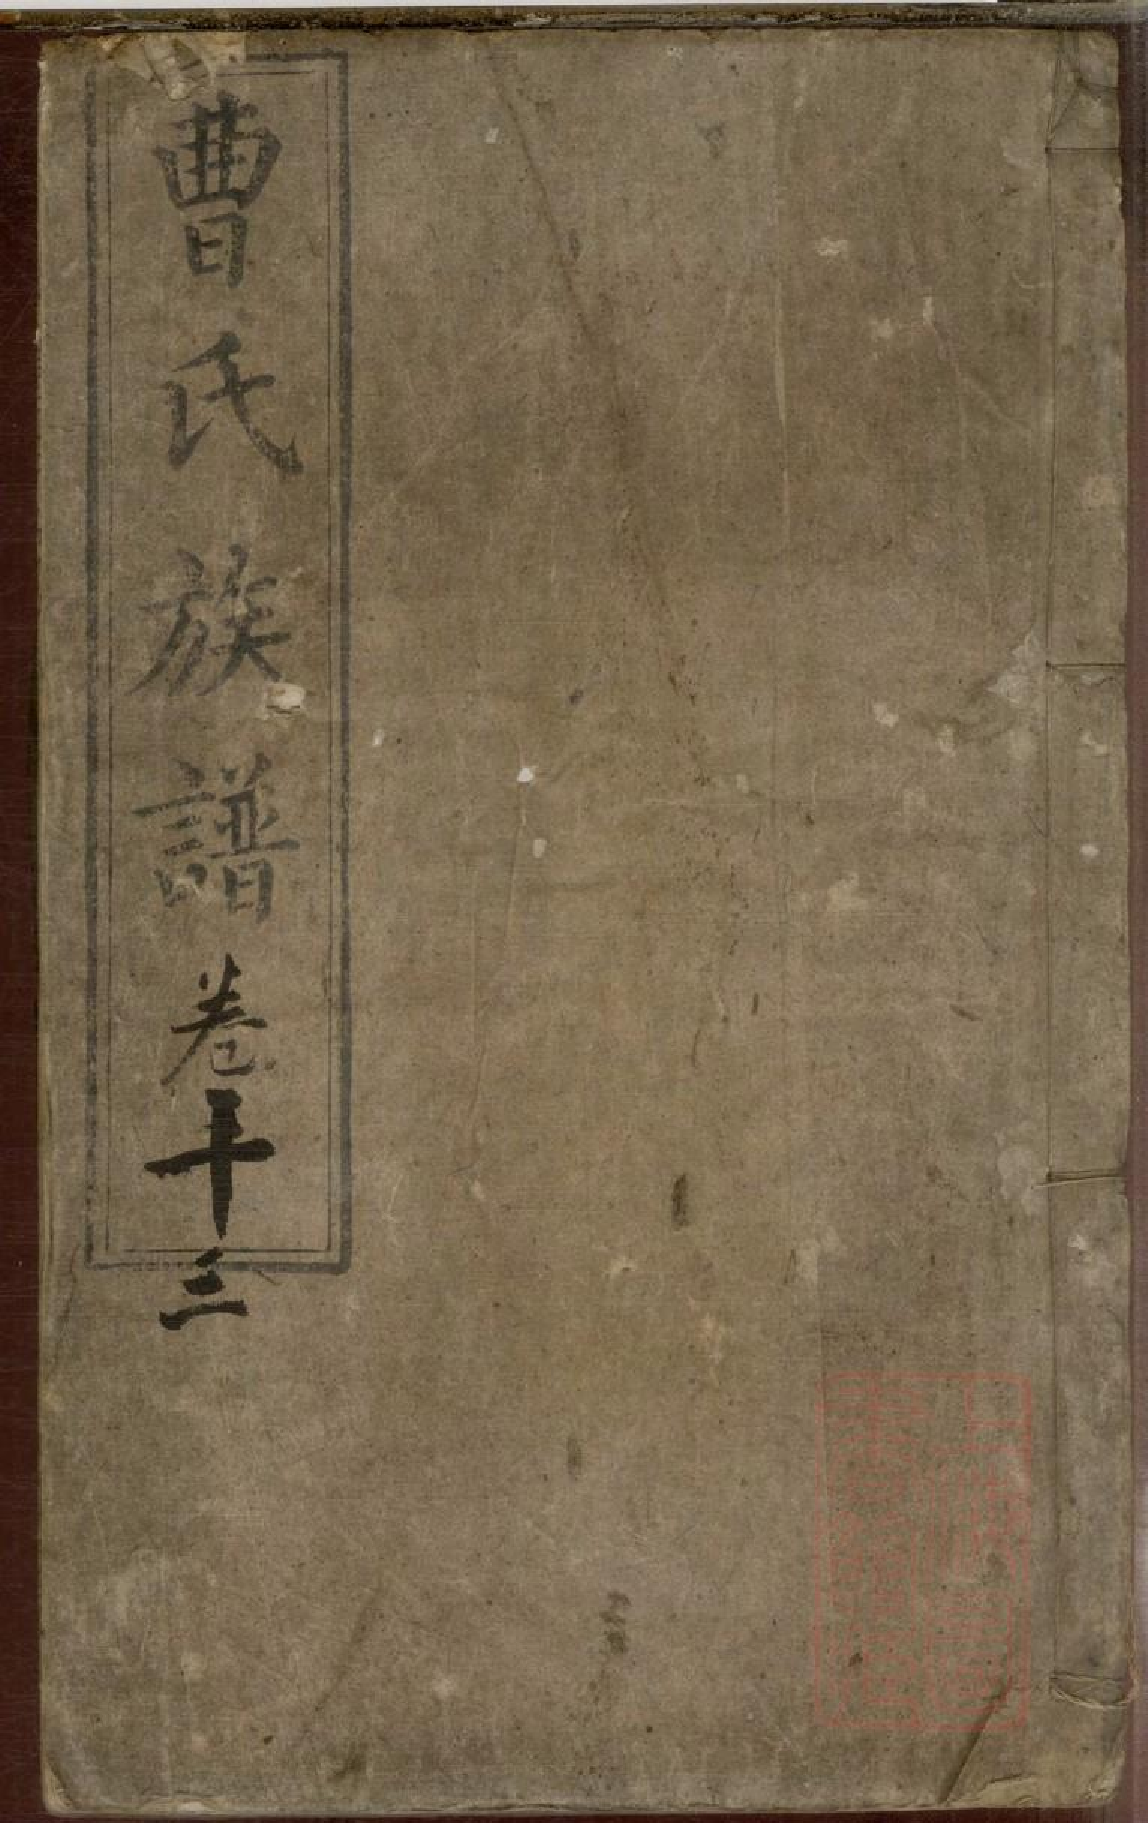 曹氏族譜卷十三